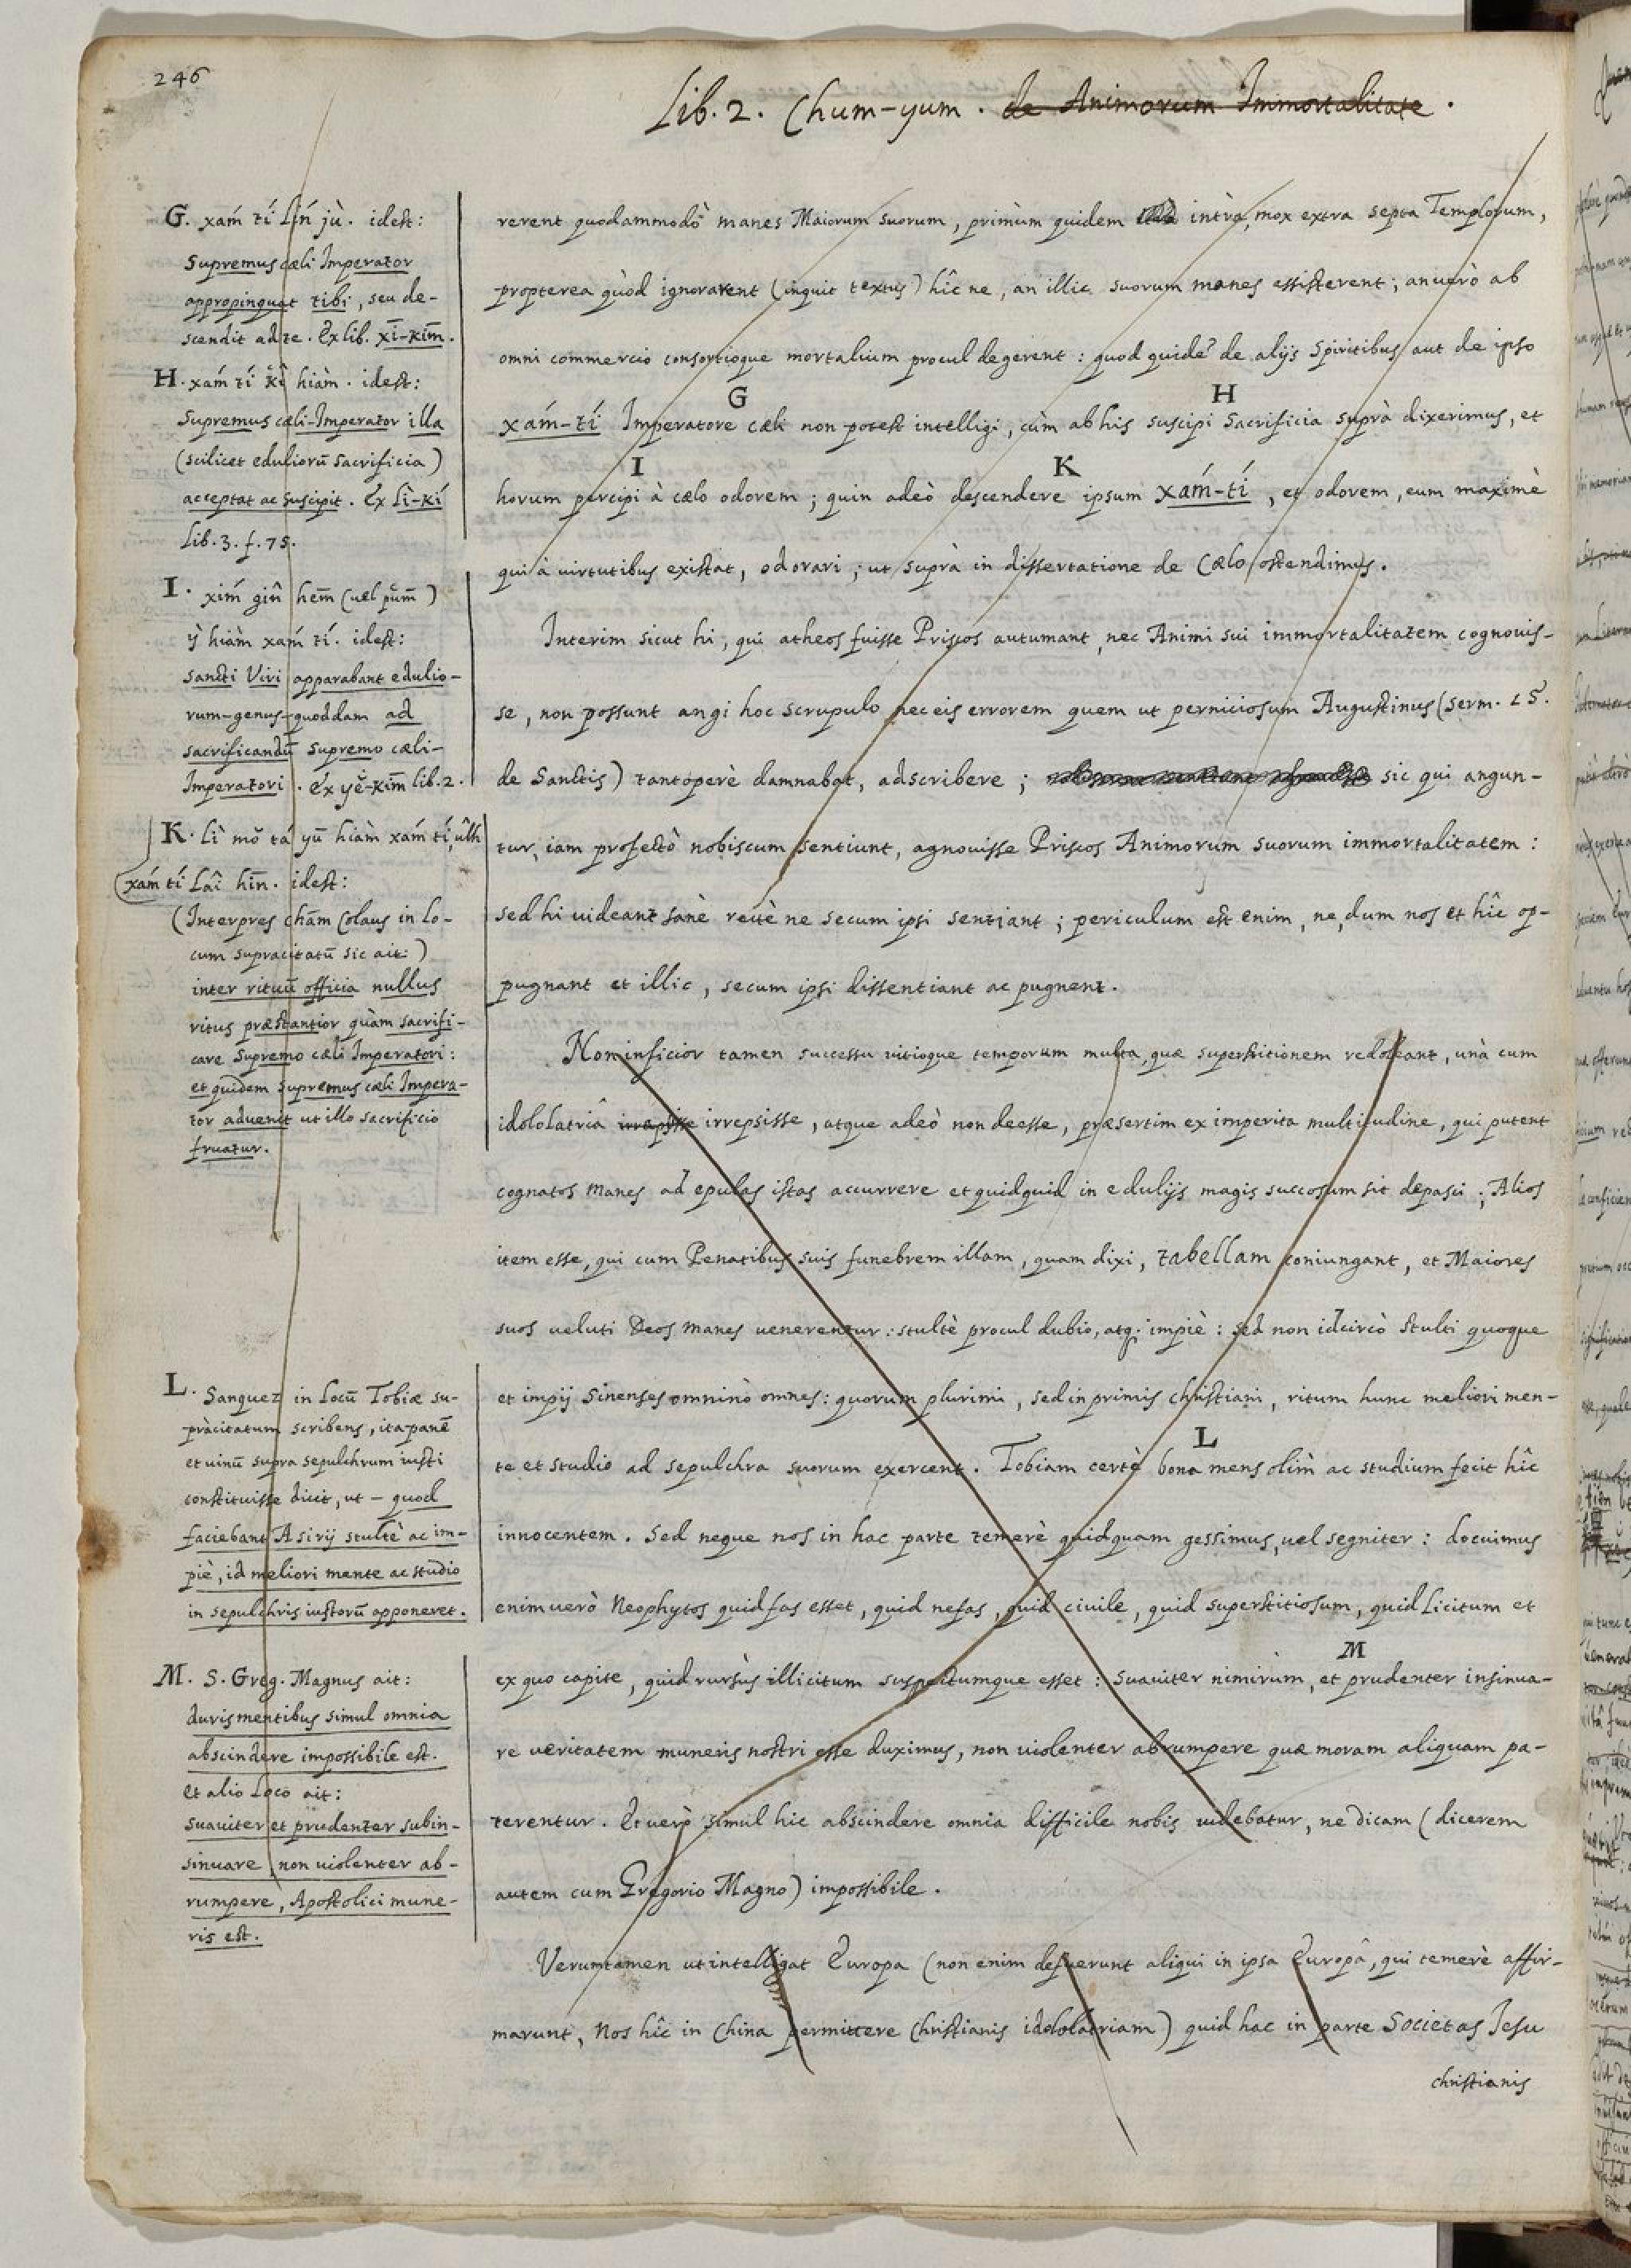 246
Lib. 2. Chum-yum. de Animorum Immortalitate.
G. xám tí Lîn jù. idest:
Supremus cæli Imperator
appropinquat tibi, seu de-
scendit ad te. Ex lib. xī-kīm.
H. xám tí kî hiàm. idest:
Supremus cæli-Imperator illa
(scilicet eduliorū sacrificia)
acceptat ac suscipit. Ex Lì-kí
Lib. 3. f. 75.
I. xím gîn hēm (uel pūm)
ỳ hiàm xám tí. idest:
sancti Viri apparabant edulio-
rum-genus-quoddam ad
sacrificandū supremo cæli-
Imperatori. Ex yĕ-kīm lib. 2.
K. Lì mŏ tá yū hiàm xám tí, ûlh
xám tí Laî hīn. idest:
(Interpres chām Colaus in lo-
cum supracitatū sic ait:)
inter rituū officia nullus
ritus præstantior quàm sacrifi-
care supremo cæli Imperatori:
et quidem supremus cæli Impera-
tor advenit ut illo sacrificio
fruatur.
L. Sanquez in Locū Tobiæ su-
pràcitatum scribens, ita panē
et uinū supra sepulchrum iusti
constituisse dicit, ut - quod
faciebant Asirij stultè ac im-
piè, id meliori mente ac studio
in sepulchris iustorū apponeret.
M. S. Greg. Magnus ait:
duris mentibus simul omnia
abscindere impossibile est.
et alio Loco ait:
suauiter et prudenter subin-
sinuare, non uiolenter ab-
rumpere, Apostolici mune-
ris est.
rerent quodammodò manes Maiorum suorum, primùm quidem intrà, mox extra septa Templorum,
propterea quòd ignorarent (inquit textus) hîc ne, an illic suorum manes assisterent; an uerò ab
omni commercio consortioque mortalium procul degerent: quod quidē de alijs Spiritibus aut de ipso
G H
xám-tí Imperatore cæli non potest intelligi, cùm ab his suscipi Sacrificia suprà dixerimus, et
I K
horum percipi à cælo odorem; quin adeò descendere ipsum xám-tí, et odorem, eum maximè
qui à uirtutibus existat, odorari; ut suprà in dissertatione de Cælo ostendimus.
Interim sicut hi, qui atheos fuisse Priscos autumant, nec Animi sui immortalitatem cognouis-
se, non possunt angi hoc scrupulo nec eis errorem quem ut perniciosum Augustinus (serm. 15.
de Sanctis) tantoperè damnabat, adscribere; sic qui angun-
tur, iam profectò nobiscum sentiunt, agnouisse Priscos Animorum suorum immortalitatem:
sed hi uideant sanè rectè ne secum ipsi sentiant; periculum est enim, ne, dum nos et hîc op-
pugnant et illic, secum ipsi dissentiant ac pugnent.
Non inficior tamen successu uitioque temporum multa, quæ superstitionem redoleant, unà cum
idololatriâ irrepsisse irrepsisse, atque adeò non deesse, præsertim ex imperita multitudine, qui putent
cognatos manes ad epulas istas accurrere et quidquid in edulijs magis succosum sit depasci; Alios
item esse, qui cum Penatibus suis funebrem illam, quam dixi, tabellam coniungant, et Maiores
suos ueluti Deos manes uenerentur: stultè procul dubio, atq; impiè: sed non idcircò stulti quoque
et impij Sinenses omninò omnes: quorum plurimi, sed in primis christiani, ritum hunc meliori men-
L
te et studio ad sepulchra suorum exercent. Tobiam certè bona mens olim ac studium fecit hîc
innocentem. Sed neque nos in hac parte temerè quidquam gessimus, uel segniter: docuimus
enimuerò Neophytos quid fas esset, quid nefas, quid ciuile, quid superstitiosum, quid Licitum et
M
ex quo capite, quid rursùs illicitum suspectumque esset: suauiter nimirùm, et prudenter insinua-
re ueritatem muneris nostri esse duximus, non uiolenter abrumpere quæ moram aliquam pa-
terentur. Et uerò simul hic abscindere omnia difficile nobis uidebatur, ne dicam (dicerem
autem cum Gregorio Magno) impossibile.
Veruntamen ut intelligat Europa (non enim defuerunt aliqui in ipsa Europâ, qui temerè affir-
marunt, Nos hîc in China permittere Christianis idololatriam) quid hac in parte Societas Jesu
christianis